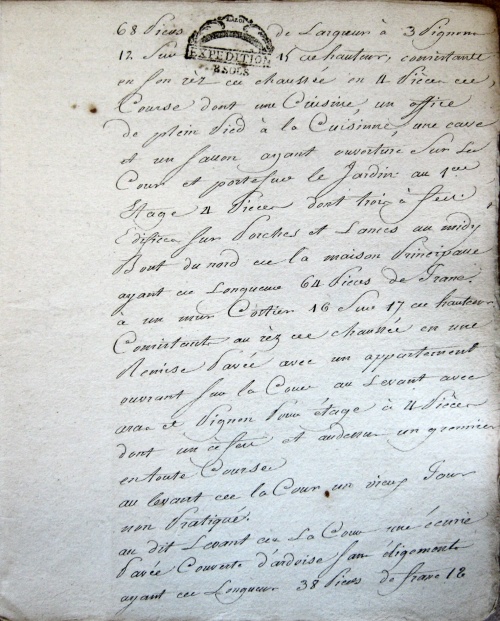 68 Pieds de Largeur à 3 Pignon
EXPEDITION
8 SOLS
12 Sur 15 de hauteur, consistante
en son réz de chaussée en 4 Pièces de
Course dont une Cuisine, un office
de plein Pied à la Cuisinne, une cave
et un sallon ayant ouverture Sur La
Cour et porte sur le Jardin au 1er
Etage 4 Pièces dont trois à feu
Edifiée Sur Porches et Lances au midy
Bout du nord de la maison Principalle
ayant de Longueur 64 Pieds de franc
à un mur Cotier 16 Sur 17 de hauteur
Consistant au réz de chaussée en une
Remise Pavée avec un appartement
ouvrant sur la Cour au Levant avec
et Pignon Pour étage à 4 Pièces
dont un à feu et audessus un grennier
en toute Course
au levant de la Cour un vieux Four
non Pratiqué.
au dit Levant de La Cour une écurie
Pavée Couverte d'ardoise sans
ayant de Longueur 38 Pieds de franc 12